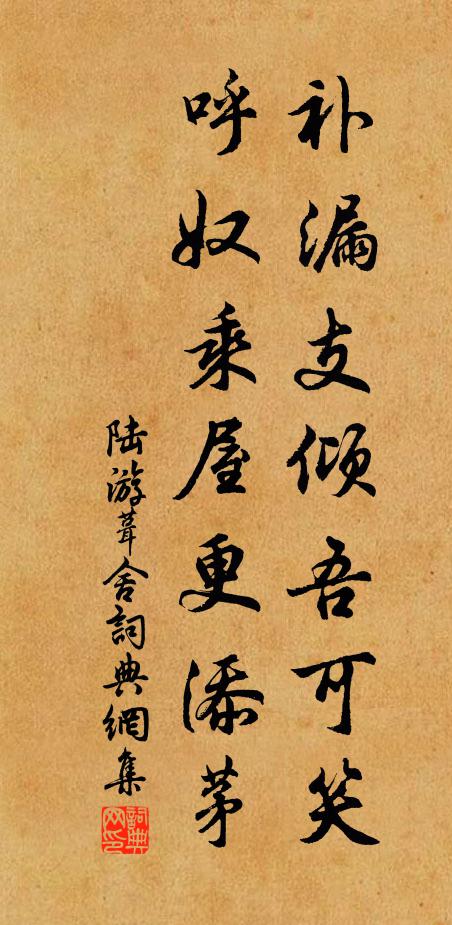 补漏支倾吾可笑
呼奴乘屋更添茅
陆游葺舍詞典網集
詞典网印